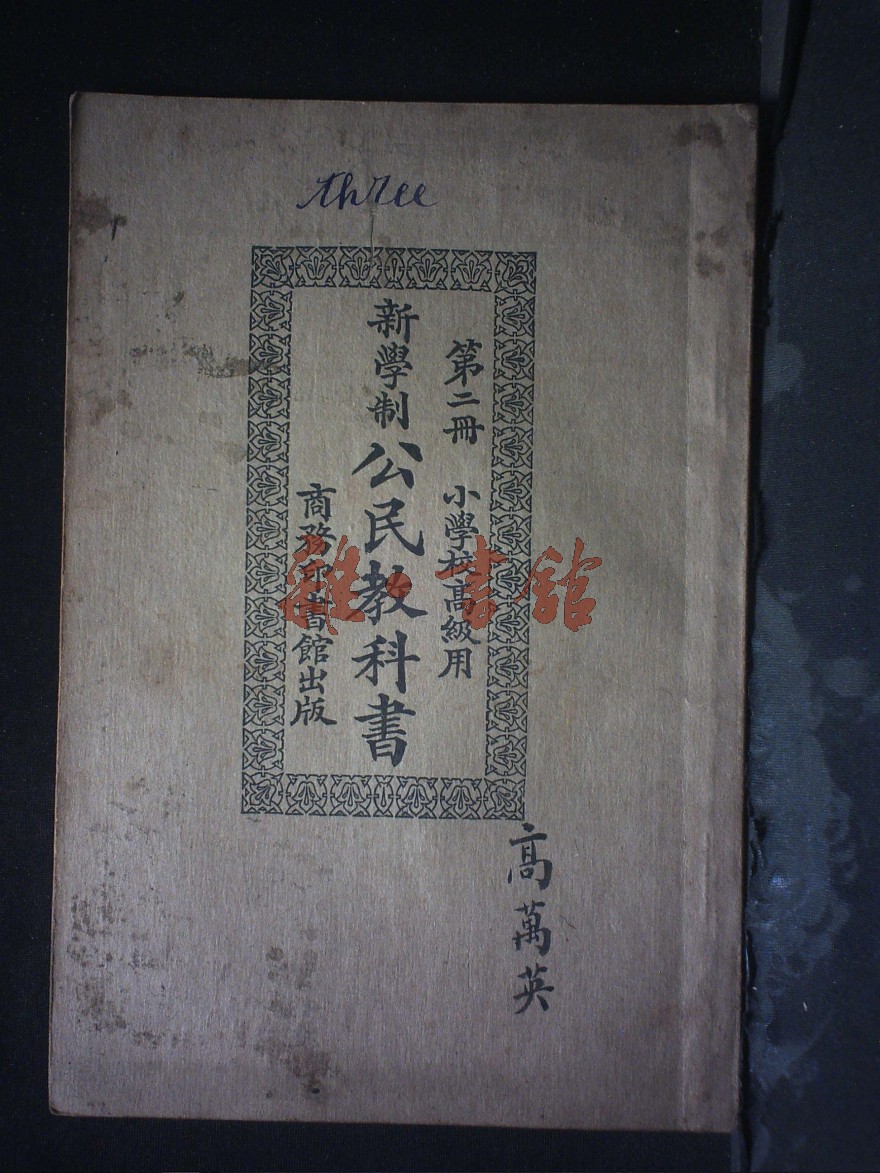 three
第二冊 小學校高級用
新學制公民教科書
商務印書館出版
高萬英
雜·書館